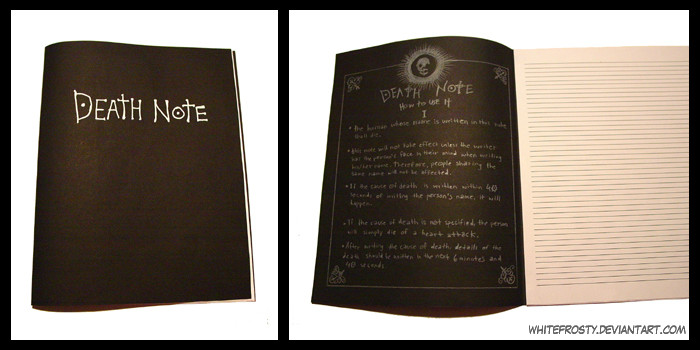 DEATH NOTE
DEATH NOTE
How to use it
I
• The human whose name is written in this note
shall die.
• This note will not take effect unless the writer
has the person's face in their mind when writing
his/her name. Therefore, people sharing the
same name will not be affected.
• If the cause of death is written within 40
seconds of writing the person's name, it will
happen.
• If the cause of death is not specified, the person
will simply die of a heart attack.
• After writing the cause of death, details of the
death should be written in the next 6 minutes and
40 seconds
WHITEFROSTY.DEVIANTART.COM